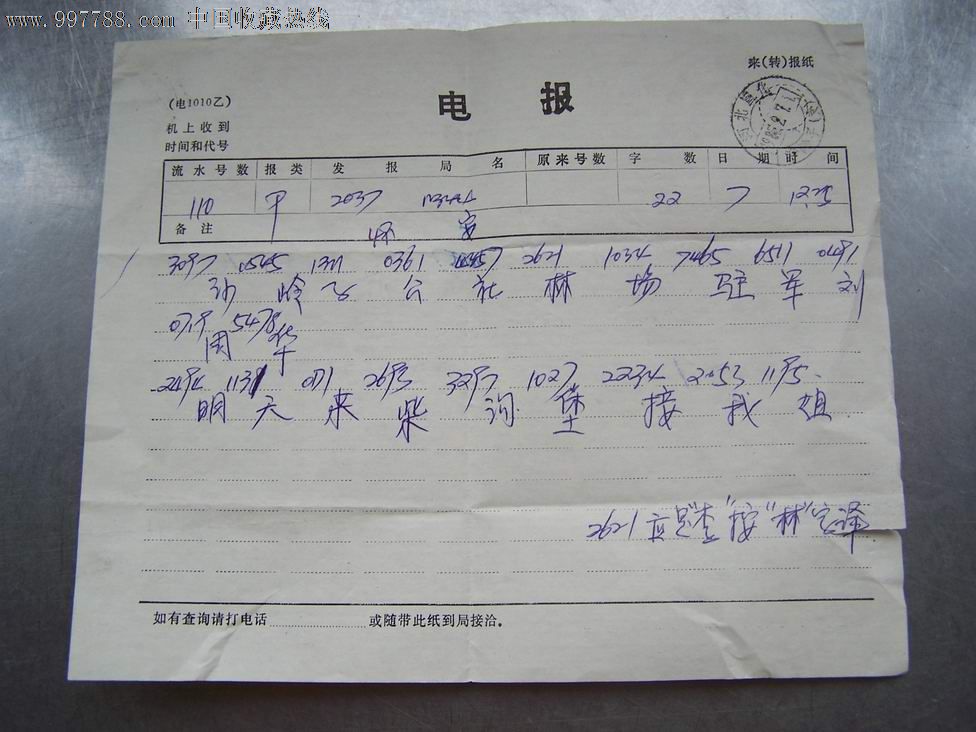 www.997788.com 中国收藏热线
来(转)报纸
(电1010乙)
电 报
机上收到
时间和代号
流水号数 报类 发报局名 原来号数 字数 日期 时间
110 2037 22 7 1225
备注 怀安
3097 0545 0361 2621 1034 7465 6511 0491
沙岭子公社林场驻军刘
5478
国华
2494 1131 2693 3297 1027 2234 2053 1195
明天来柴沟堡接我姐
2621 应是"查"按"林"字译
如有查询请打电话 或随带此纸到局接洽。